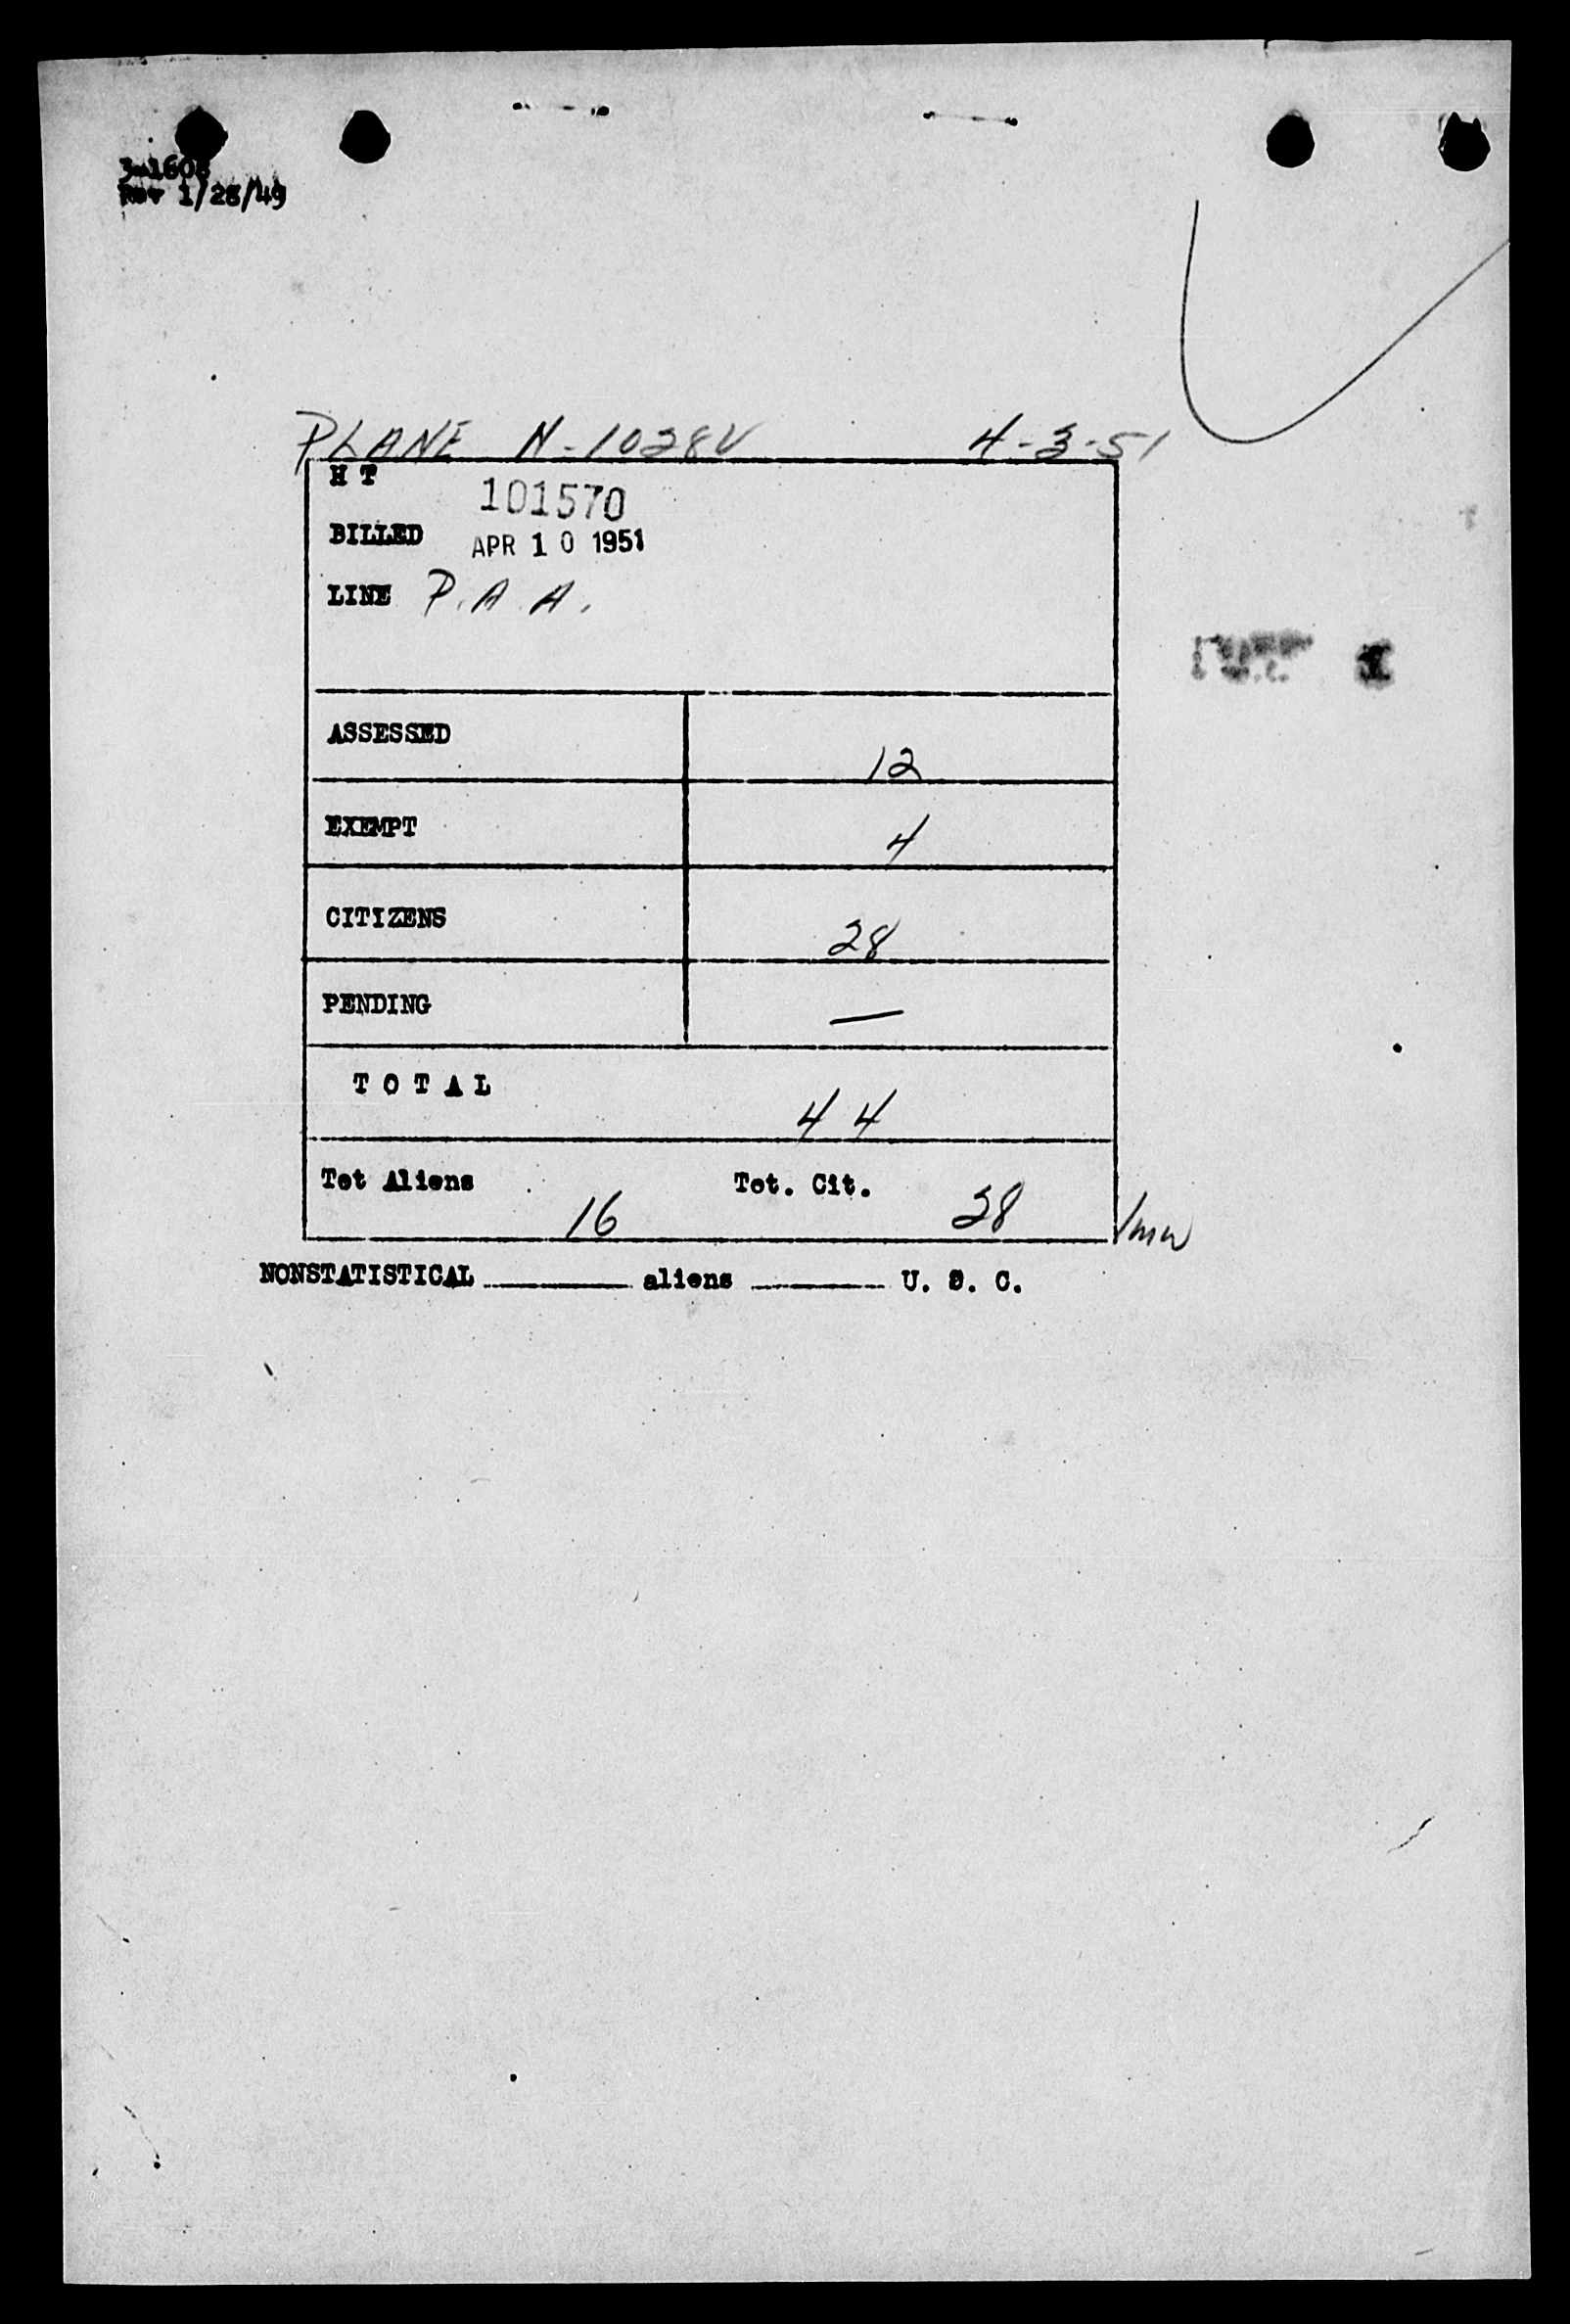 3-1608
Rev 1/28/49
PLANE N-1028V 4-3-51
H T 101570
BILLED APR 10 1951
LINE P.A.A.
ASSESSED 12
EXEMPT 4
CITIZENS 28
PENDING —
TOTAL 44
Tot Aliens 16 Tot. Cit. 28
NONSTATISTICAL ______ aliens ______ U. S. C.